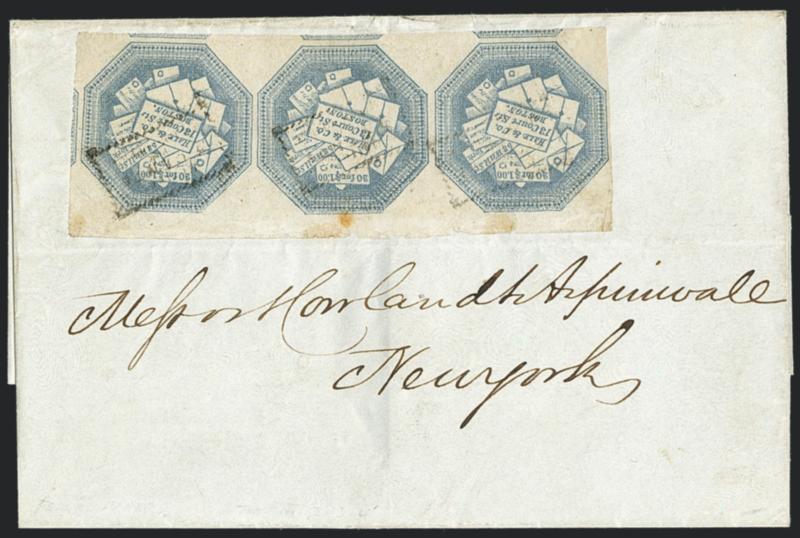 HALE & CO.
13 Court St.
BOSTON.
20 for $1.00
HALE & CO.
13 Court St.
BOSTON.
20 for $1.00
HALE & CO.
13 Court St.
BOSTON.
20 for $1.00
Messrs Howland & Aspinwall
New York